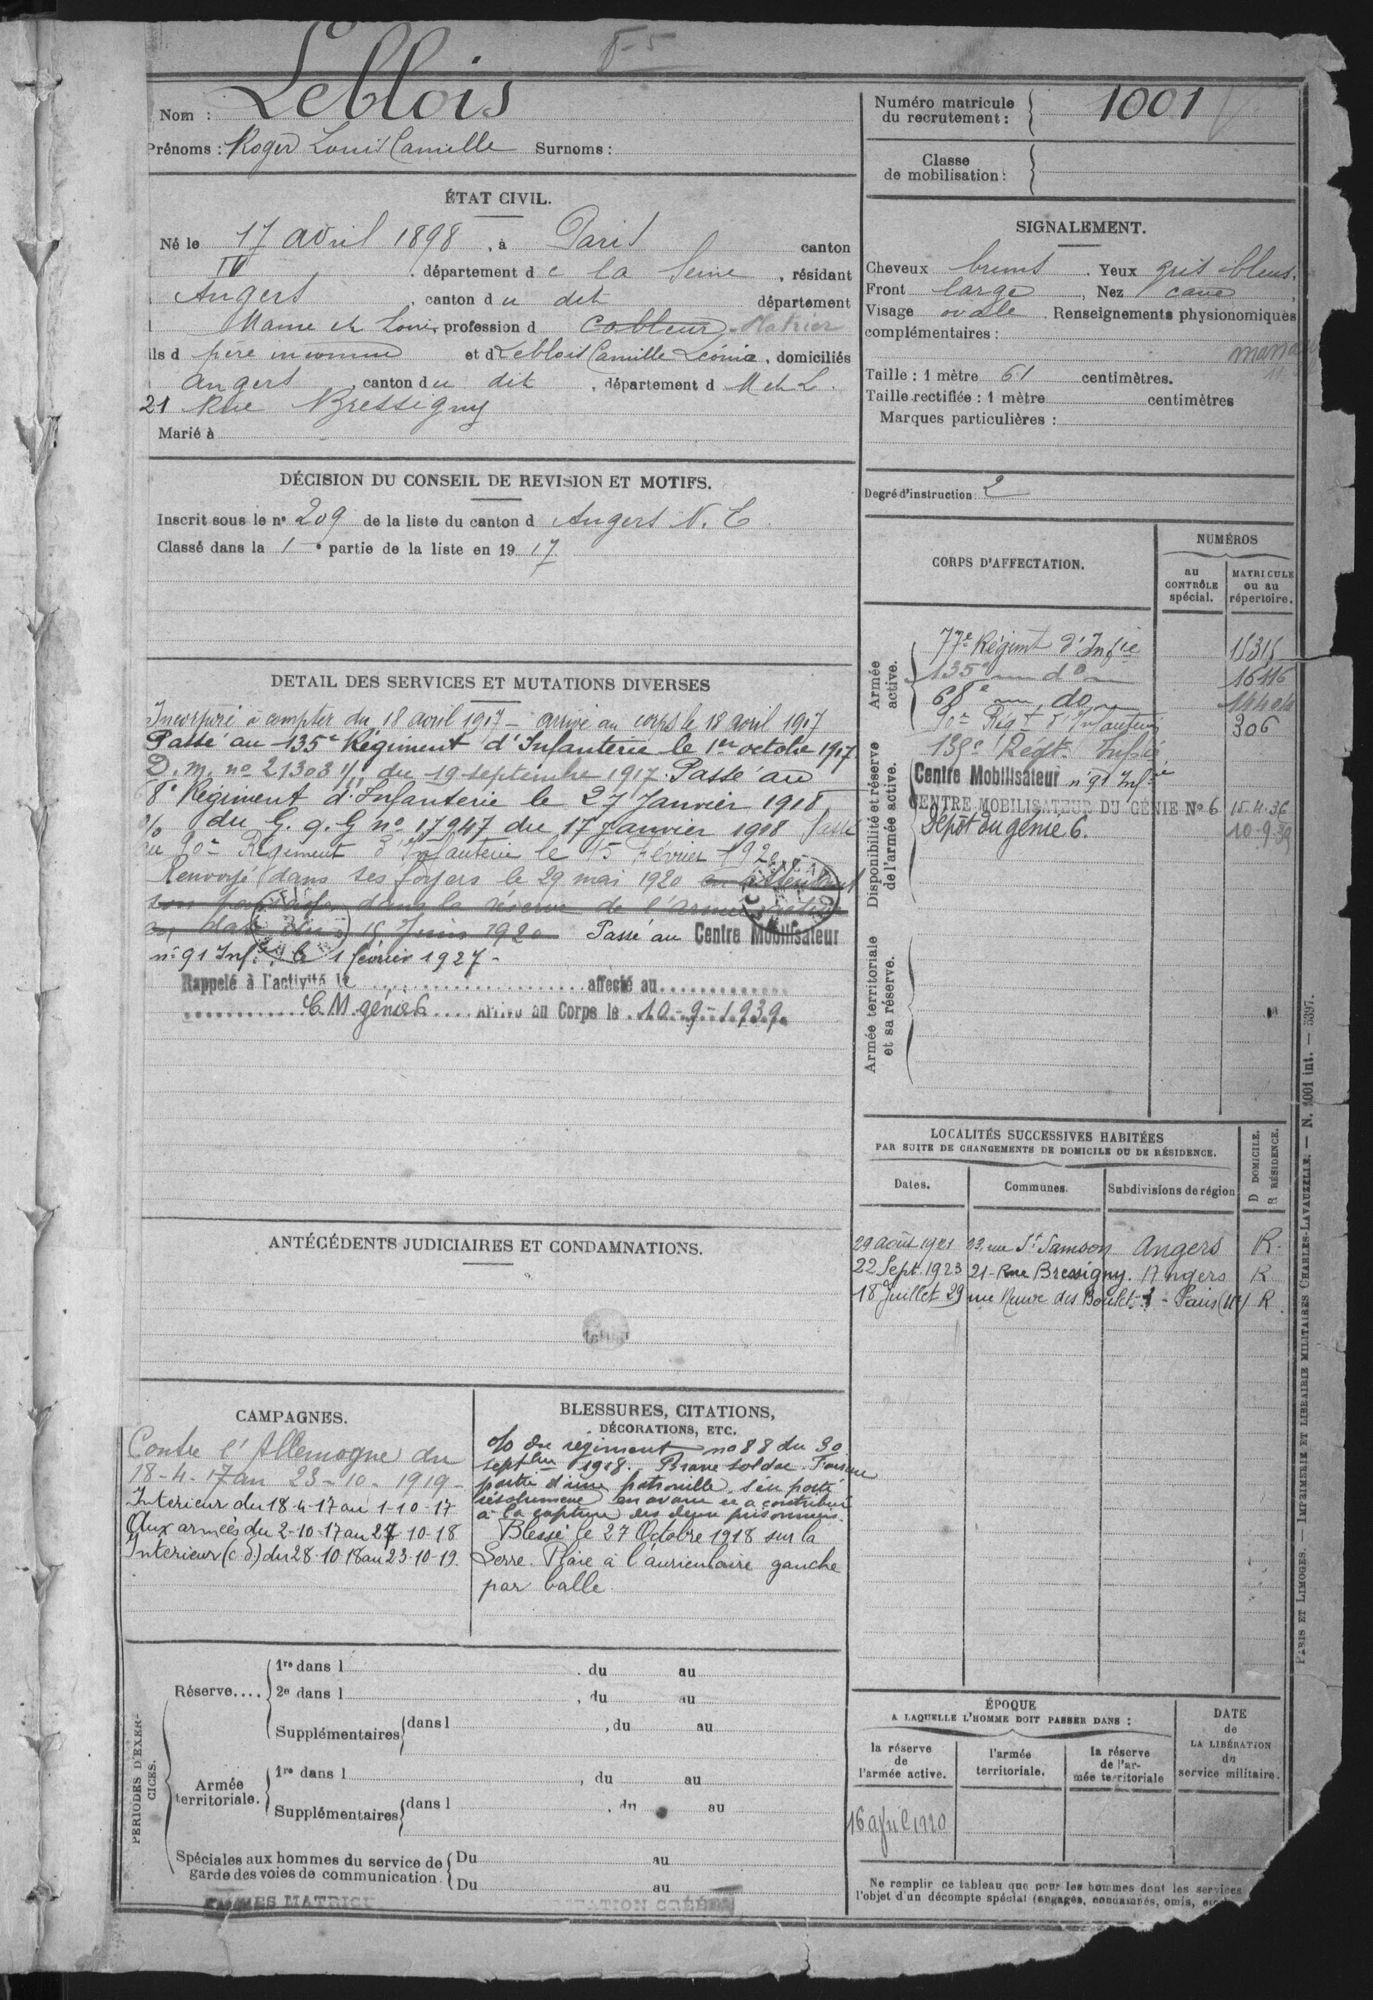 F-5
Nom : Leblois
Prénoms : Roger Louis Camille Surnoms :
Numéro matricule
du recrutement : 1001
Classe
de mobilisation :
ÉTAT CIVIL.
Né le 17 avril 1898, à Paris canton
IV département de la Seine, résidant
Angers, canton du dit département
Maine et Loire, profession d cableur
ils d père inconnu et d Leblois Camille Léonie, domiciliés
Angers, canton du dit, département d M et L.
21 Rue Bressigny
Marié à
SIGNALEMENT.
Cheveux bruns. Yeux gris bleus.
Front large, Nez cave
Visage ovale. Renseignements physionomiques
complémentaires :
Taille : 1 mètre 61 centimètres.
Taille rectifiée : 1 mètre centimètres
Marques particulières :
Degré d'instruction : 2
DÉCISION DU CONSEIL DE REVISION ET MOTIFS.
Inscrit sous le n° 209 de la liste du canton d Angers N. E.
Classé dans la 1e partie de la liste en 1917
DETAIL DES SERVICES ET MUTATIONS DIVERSES
Incorporé à compter du 18 avril 1917 - arrivé au corps le 18 avril 1917
Passé au 135e Régiment d'Infanterie le 1er octobre 1917
D. m. no 21303 1/11 du 19 septembre 1917. Passé au
8e Régiment d'Infanterie le 27 Janvier 1918
o/o du G. q. G no 17947 du 17 Janvier 1918 Passé
au 90e Régiment d'Infanterie le 15 Février 1920
Renvoyé dans ses foyers le 29 mai 1920 en attendant
son passage dans la réserve de l'armée active
15 Juin 1920 Passé au Centre Mobilisateur
n° 91 Inf. le 1 février 1927 -
Rappelé à l'activité le affecté au
C. M. génie 6 Arrivé au Corps le 10-9-1939
CORPS D'AFFECTATION.
NUMÉROS
au
CONTRÔLE
spécial.
MATRICULE
ou au
répertoire.
Armée
active.
77e Régiment d'Infie 15315
135e do 16416
68e do
90e Régt d'Infanterie 306
Disponibilité et réserve
de l'armée active.
135e Régt Infie
Centre Mobilisateur n° 91 Infie
CENTRE MOBILISATEUR DU GÉNIE No 6 15.4.36
Dépôt du génie 6. 10-9-39
Armée territoriale
et sa réserve.
LOCALITÉS SUCCESSIVES HABITÉES
PAR SUITE DE CHANGEMENTS DE DOMICILE OU DE RÉSIDENCE.
Dates. Communes. Subdivisions de région D DOMICILE. R RÉSIDENCE.
29 août 1921 23, rue St Samson Angers R.
22 Sept. 1923 21 - Rue Bressigny. Angers R
18 Juillet 29 rue Neuve des Boulets - Paris R.
ANTÉCÉDENTS JUDICIAIRES ET CONDAMNATIONS.
CAMPAGNES.
Contre l'Allemagne du
18-4-17 au 23-10-1919 -
Interieur du 18-4-17 au 1-10-17
Aux armées du 2-10-17 au 27-10-18
Interieur (c. d) du 28-10-18 au 23-10-19.
BLESSURES, CITATIONS,
DÉCORATIONS, ETC.
o/o du régiment no 88 du 30
septbre 1918. Brave soldat. Faisant
partie d'une patrouille, s'est porté
résolument en avant et a contribué
à la capture des deux prisonniers.
Blessé le 27 Octobre 1918 sur la
Serre. Plaie à l'auriculaire gauche
par balle.
PERIODES D'EXER-
CICES.
Réserve....
1re dans l du au
2e dans l, du au
Supplémentaires dans l, du au
Armée
territoriale.
1re dans l, du au
Supplémentaires dans l, du au
Spéciales aux hommes du service de
garde des voies de communication.
Du au
Du au
ÉPOQUE
A LAQUELLE L'HOMME DOIT PASSER DANS :
la réserve
de
l'armée active.
l'armée
territoriale.
la réserve
de l'ar-
mée territoriale
DATE
de
LA LIBÉRATION
du
service militaire.
16 avril 1920
Ne remplir ce tableau que pour les hommes dont les services
l'objet d'un décompte spécial (engagés, condamnés, omis,
PARIS ET LIMOGES. — IMPRIMERIE ET LIBRAIRIE MILITAIRES CHARLES-LAVAUZELLE. — N. 1001 int. — 5397.